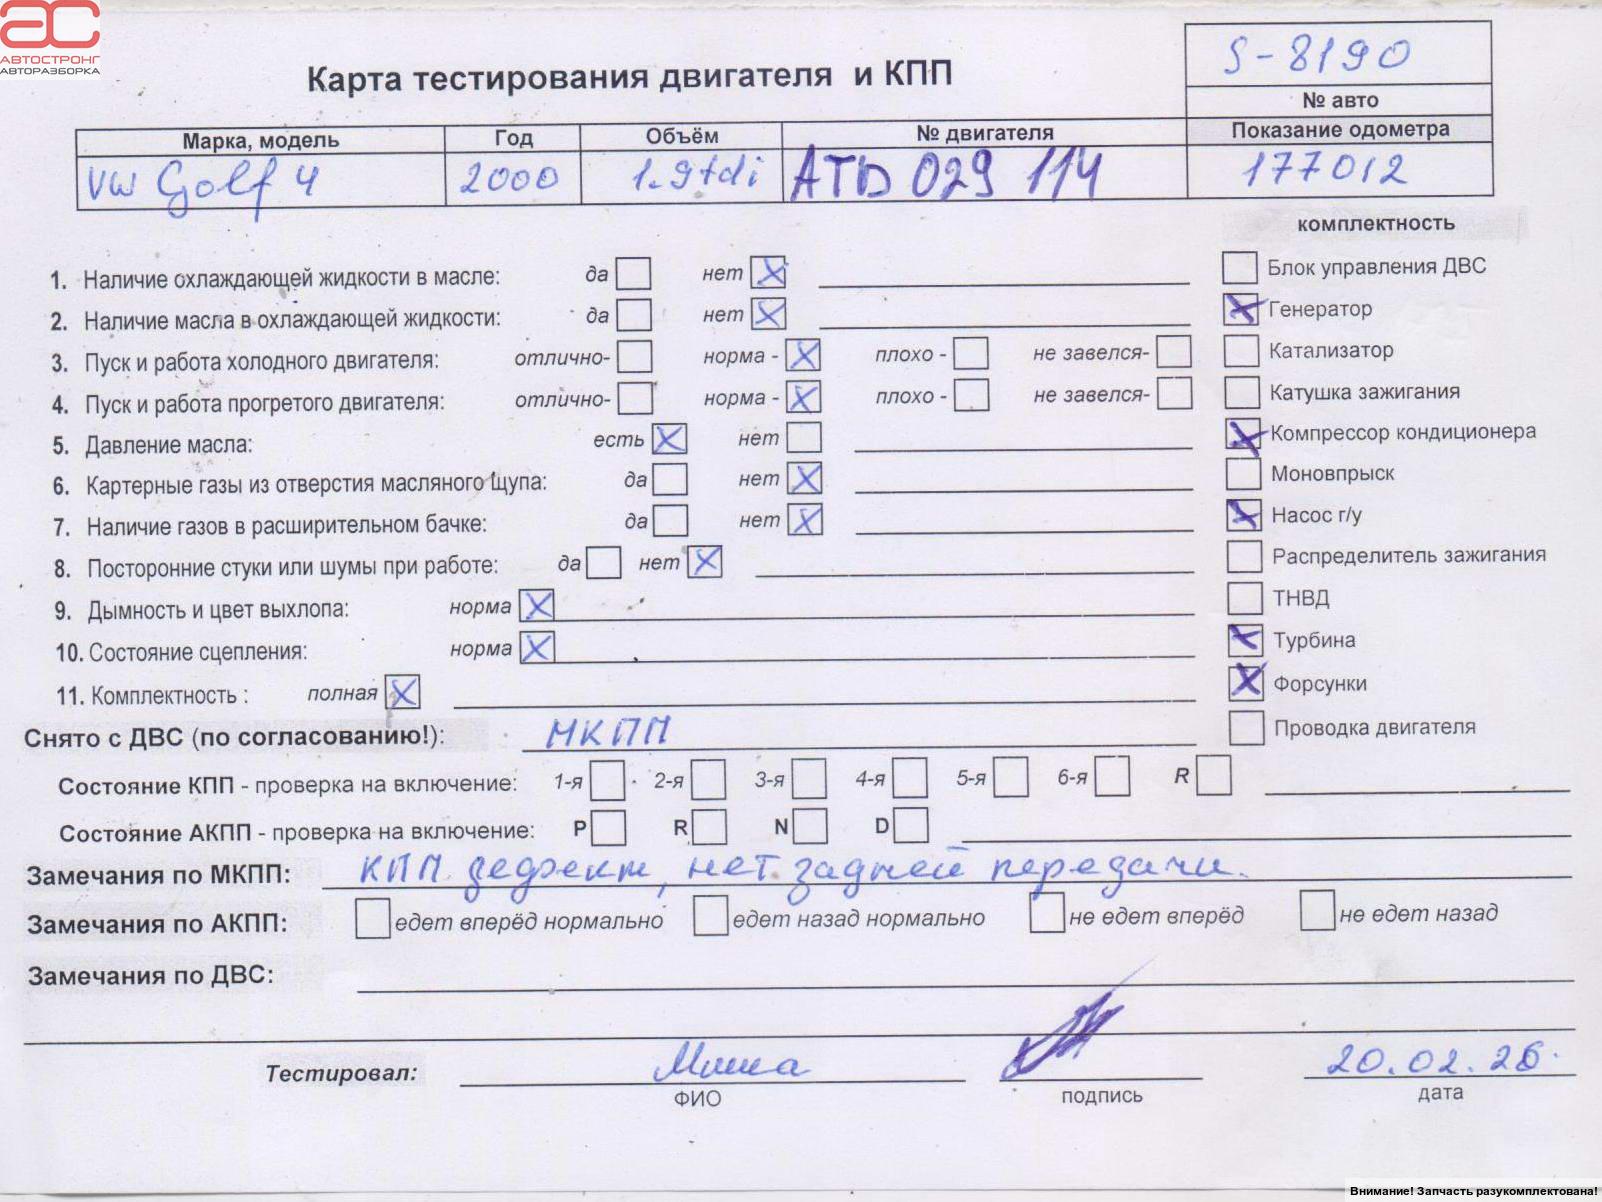 АВТОСТРОНГ
АВТОРАЗБОРКА
Карта тестирования двигателя и КПП
S-8190
№ авто
Марка, модель Год Объём № двигателя Показание одометра
VW Golf 4 2000 1.9tdi ATD 029 114 177012
комплектность
1. Наличие охлаждающей жидкости в масле: да нет X
Блок управления ДВС
2. Наличие масла в охлаждающей жидкости: да нет X
X Генератор
3. Пуск и работа холодного двигателя: отлично- норма - X плохо - не завелся-
Катализатор
4. Пуск и работа прогретого двигателя: отлично- норма - X плохо - не завелся-
Катушка зажигания
5. Давление масла: есть X нет
X Компрессор кондиционера
6. Картерные газы из отверстия масляного щупа: да нет X
Моновпрыск
7. Наличие газов в расширительном бачке: да нет X
X Насос г/у
8. Посторонние стуки или шумы при работе: да нет X
Распределитель зажигания
9. Дымность и цвет выхлопа: норма X
ТНВД
10. Состояние сцепления: норма X
X Турбина
11. Комплектность : полная X
X Форсунки
Снято с ДВС (по согласованию!): МКПП
Проводка двигателя
Состояние КПП - проверка на включение: 1-я 2-я 3-я 4-я 5-я 6-я R
Состояние АКПП - проверка на включение: P R N D
Замечания по МКПП: КПП дефект, нет задней передачи.
Замечания по АКПП: едет вперёд нормально едет назад нормально не едет вперёд не едет назад
Замечания по ДВС:
Тестировал: Миша 20.02.26.
ФИО подпись дата
Внимание! Запчасть разукомплектована!